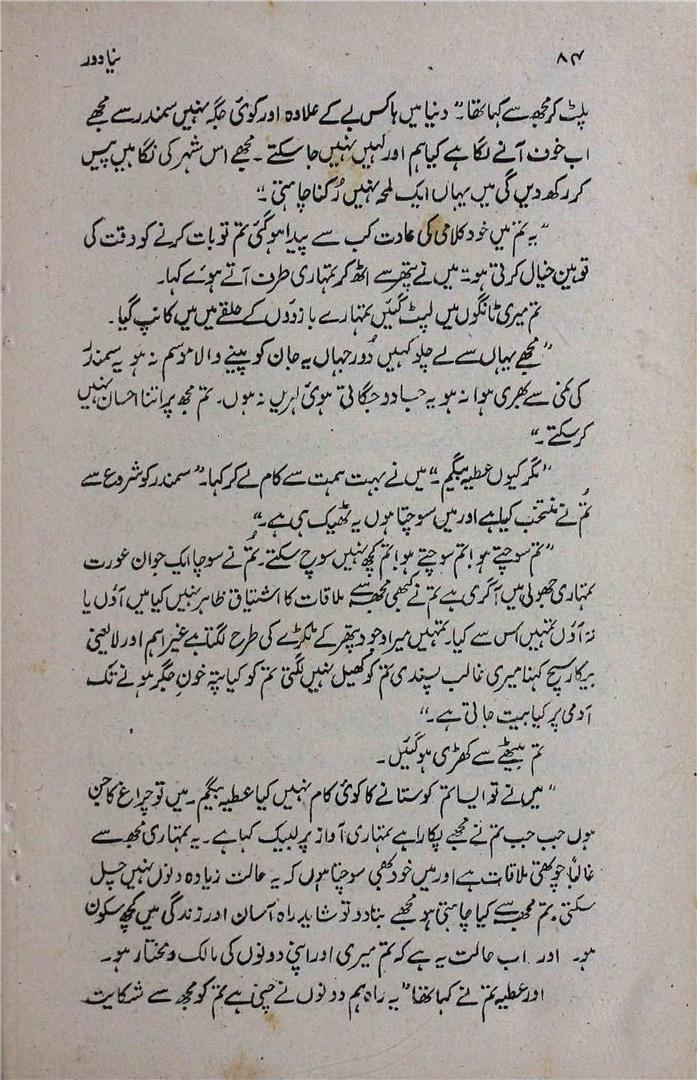 ۸۴ نیا دور
پلٹ کر مجھ سے کہا تھا۔" دنیا میں ہاکس بے کے علاوہ اور کوئی جگہ نہیں سمندر سے مجھے
اب خوف آنے لگا ہے کیا ہم اور کہیں نہیں جا سکتے۔ مجھے اس شہر کی نگاہیں پیس
کر رکھ دیں گی میں یہاں ایک لمحہ نہیں رُکنا چاہتی۔"
"یہ تم میں خود کلامی کی عادت کب سے پیدا ہو گئی تم تو بات کرنے کو وقت کی
توہین خیال کرتی ہو۔" میں نے پتھر سے اٹھ کر تمہاری طرف آتے ہوئے کہا۔
تم میری ٹانگوں میں لپٹ گئیں تمہارے بازوؤں کے حلقے میں میں کانپ گیا۔
"مجھے یہاں سے لے چلو کہیں دُور جہاں یہ جان کو پینے والا موسم نہ ہو یہ سمندر
کی نمی سے بھری ہوا نہ ہو یہ جادو جگاتی ہوئی لہریں نہ ہوں۔ تم مجھ پر اتنا احسان نہیں
کر سکتے۔"
"مگر کیوں عطیہ بیگم۔" میں نے بہت ہمت سے کام لے کر کہا۔" سمندر کو شروع سے
تُم نے منتخب کیا ہے اور میں سوچتا ہوں یہ ٹھیک ہی ہے۔"
"تم سوچتے ہو! تم سوچتے ہو! تم کچھ نہیں سوچ سکتے۔ تُم نے سوچا ایک جوان عورت
تمہاری جھولی میں آ گری ہے تم نے کبھی مجھ سے ملاقات کا اشتیاق ظاہر نہیں کیا میں آؤں یا
نہ آؤں تمہیں اس سے کیا۔ تمہیں میرا وجود پتھر کے ٹکڑے کی طرح لگتا ہے غیر اہم اور لا یعنی
بیکار سچ کہنا میری غالب پسندی تم کو کھیل نہیں لگتی تم کو کیا پتہ خونِ جگر ہونے تک
آدمی پر کیا بیت جاتی ہے۔"
تم بیٹھے سے کھڑی ہو گئیں۔
"میں نے تو ایسا تم کو ستانے کا کوئی کام نہیں کیا عطیہ بیگم۔ میں تو چراغ کا جن
ہوں جب جب تم نے مجھے پکارا ہے تمہاری آواز پر لبیک کہا ہے۔ یہ تمہاری مجھ سے
غالباً چوتھی ملاقات ہے اور میں خود بھی سوچتا ہوں کہ یہ حالت زیادہ دنوں نہیں چل
سکتی۔ تم مجھ سے کیا چاہتی ہو مجھے بتا دو تو شاید راہ آسان اور زندگی میں کچھ سکون
ہو۔ اور اب حالت یہ ہے کہ تم میری اور اپنی دونوں کی مالک و مختار ہو۔
اور عطیہ تم نے کہا تھا" یہ راہ ہم دونوں نے چنی ہے تم کو مجھ سے شکایت